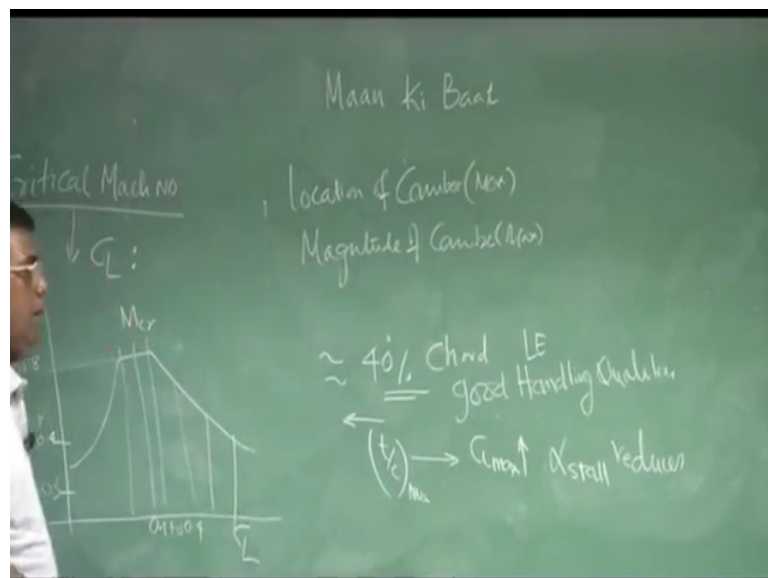 Maan Ki Baat
Critical Mach No
, Location of Camber (Max)
Magnitude of Camber (Max)
CL :
Mcr
≈ 40% Chord LE
good Handling Qualities
(t/c)max → CLmax↑ αstall reduces
CL